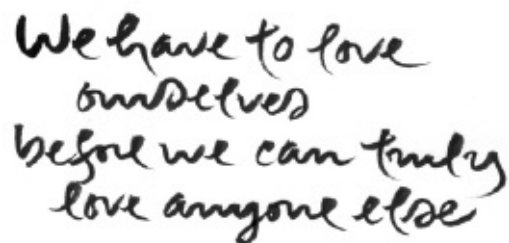 We have to love
ourselves
before we can truly
love anyone else